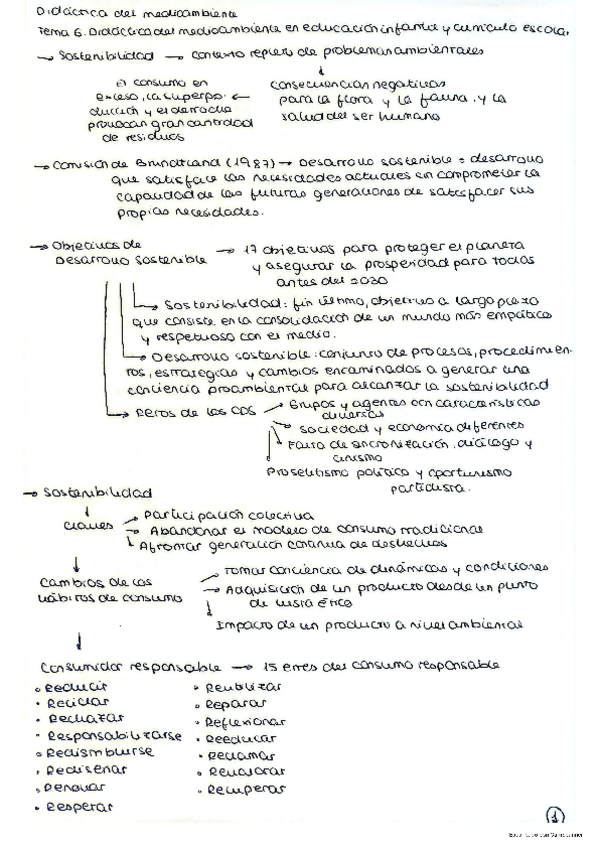 Didáctica del medioambiente
Tema 6. Didáctica del medioambiente en educación infantil y currículo escolar.
→ Sostenibilidad → contexto repleto de problemas ambientales
↓
consecuencias negativas
para la flora y la fauna y la
salud del ser humano
El consumo en
exceso, la superpo- ←
ducción y el derroche
provocan gran cantidad
de residuos
→ Comisión de Brundtland (1987) → Desarrollo sostenible = desarrollo
que satisface las necesidades actuales sin comprometer la
capacidad de las futuras generaciones de satisfacer sus
propias necesidades.
→ Objetivos de Desarrollo Sostenible → 17 objetivos para proteger el planeta
y asegurar la prosperidad para todos
antes del 2030
→ Sostenibilidad: fin último, objetivo a largo plazo
que consiste en la consolidación de un mundo más empático
y respetuoso con el medio.
→ Desarrollo sostenible: conjunto de procesos, procedimien-
tos, estrategias y cambios encaminados a generar una
conciencia proambiental para alcanzar la sostenibilidad
→ Retos de los ODS → Grupos y agentes con características
diversas
→ Sociedad y economía diferentes
→ Falta de sincronización, diálogo y
civismo
Proselitismo político y oportunismo
partidista.
→ Sostenibilidad
↓
claves → Participación colectiva
→ Abandonar el modelo de consumo tradicional
→ Afrontar generación continua de deshechos
↓
Cambios de los
hábitos de consumo → Tomar conciencia de dinámicas y condiciones
→ Adquisición de un producto desde un punto
de vista ético
↓
Impacto de un producto a nivel ambiental
↓
Consumidor responsable → 15 erres del consumo responsable
• Reducir
• Reciclar
• Rechazar
• Responsabilizarse
• Redistribuirse
• Rediseñar
• Renovar
• Respetar
• Reutilizar
• Reparar
• Reflexionar
• Reeducar
• Reclamar
• Revalorar
• Recuperar
1